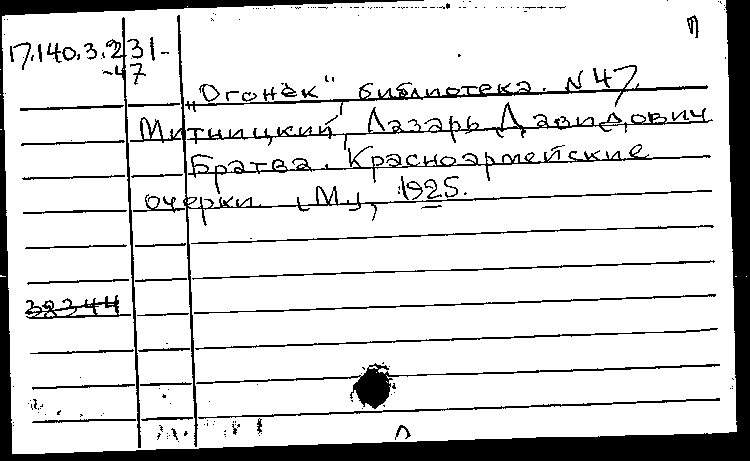 П
17.140.3.231-
-47
„Огонёк“, библиотека. N 47.
Митницкий, Лазарь Давидович
Братва. Красноармейские
очерки. [М.], 1925.
38344